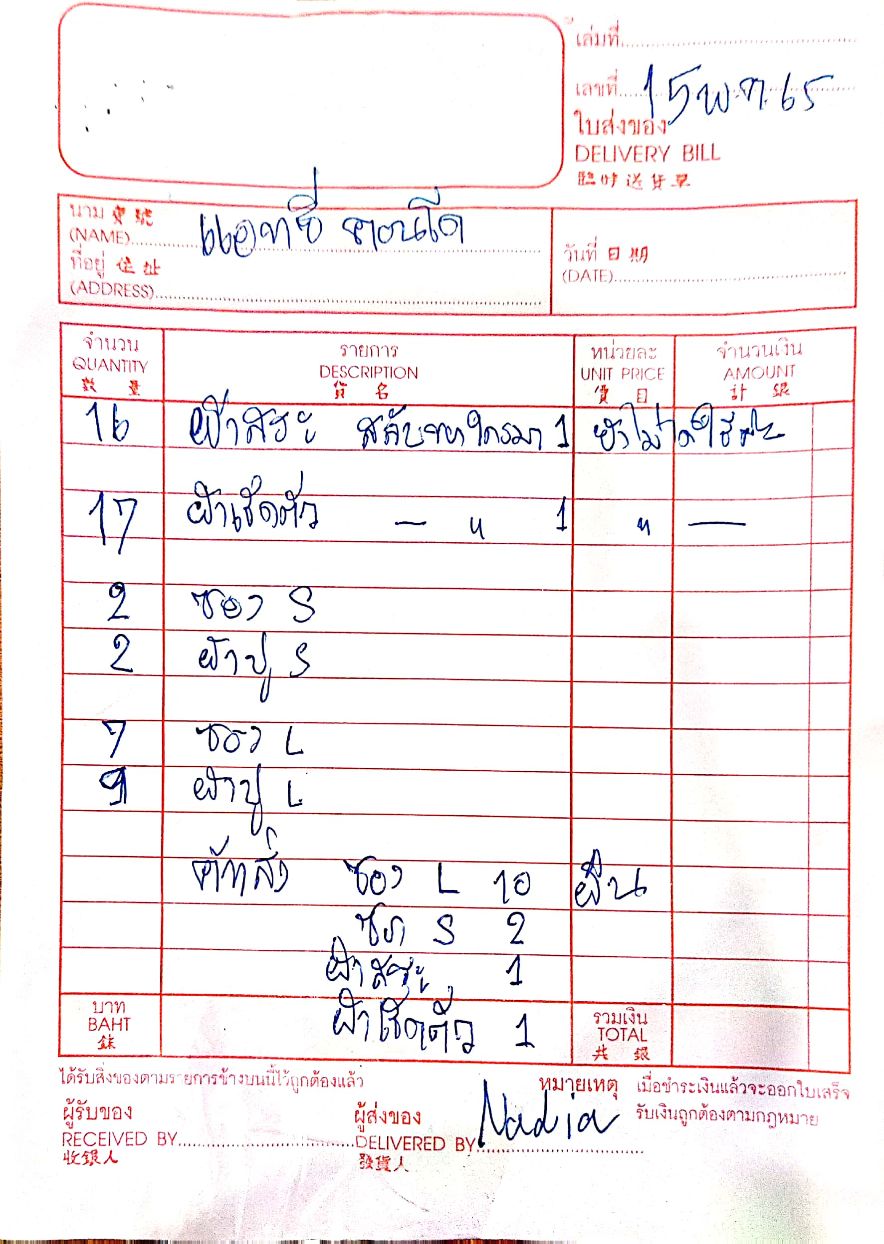 เล่มที่
เลขที่ 15 พ.ค. 65
ใบส่งของ
DELIVERY BILL
臨時送貨單
นาม 寶號
(NAME) แอทซี คอนโด
ที่อยู่ 住址
(ADDRESS)
วันที่ 日期
(DATE)
จำนวน รายการ หน่วยละ จำนวนเงิน
QUANTITY DESCRIPTION UNIT PRICE AMOUNT
數量 貨名 價目 計銀
16 ผ้าสระ สลับ ใครมา 1 ยังไม่ได้ใช้
17 ผ้าเช็ดตัว — " 1 " —
2 ซอง S
2 ผ้าปู S
7 ซอง L
9 ผ้าปู L
ค้างส่ง ซอง L 10 ผืน
ซอง S 2
ผ้าสระ 1
ผ้าเช็ดตัว 1
บาท รวมเงิน
BAHT TOTAL
銖 共銀
ได้รับสิ่งของตามรายการข้างบนนี้ไว้ถูกต้องแล้ว
หมายเหตุ เมื่อชำระเงินแล้วจะออกใบเสร็จ
รับเงินถูกต้องตามกฎหมาย
ผู้รับของ ผู้ส่งของ
RECEIVED BY DELIVERED BY Nadia
收銀人 發貨人